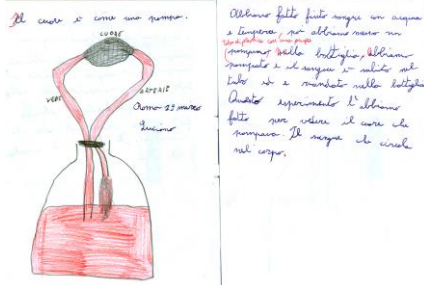 Il cuore è come una pompa.
CUORE
VENE
ARTERIE
Roma 23 marzo
Luciano
Abbiamo fatto finto sangue con acqua
e tempera, poi abbiamo messo un
tubo di plastica con una pompa
nella bottiglia, Abbiamo
pompato e il sangue è salito nel
tubo ed è mandato nella bottiglia
Questo esperimento l'abbiamo
fatto per vedere il cuore che
pompava. Il sangue che circola
nel corpo.